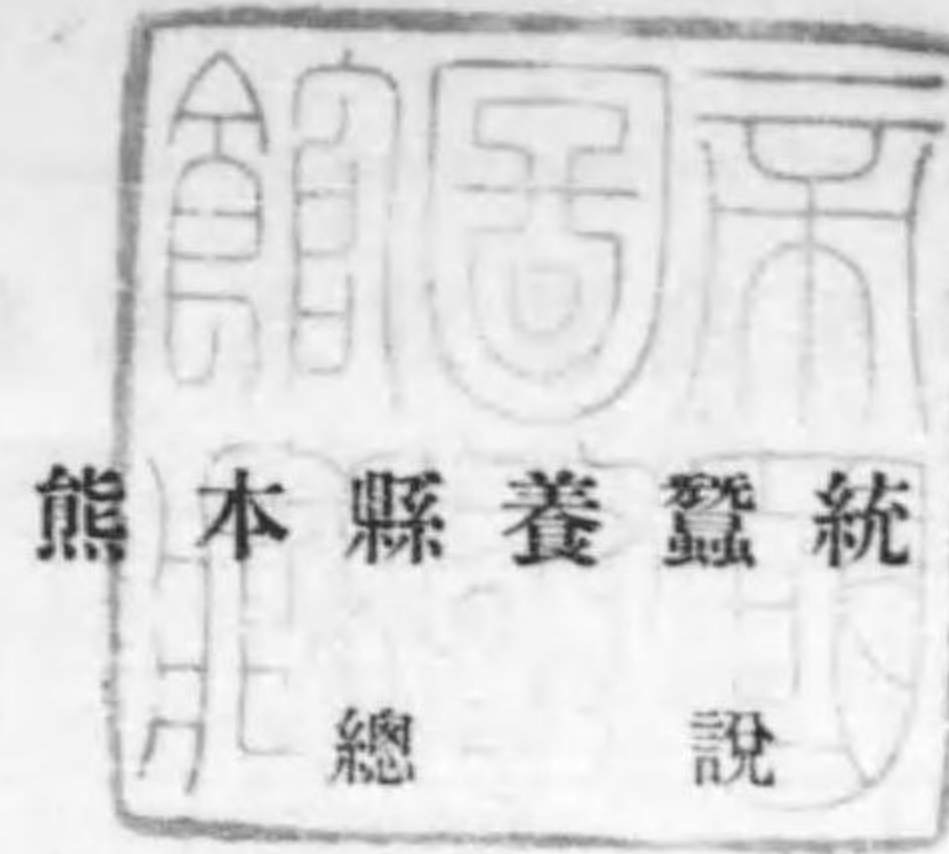 熊本縣養蠶統
總說